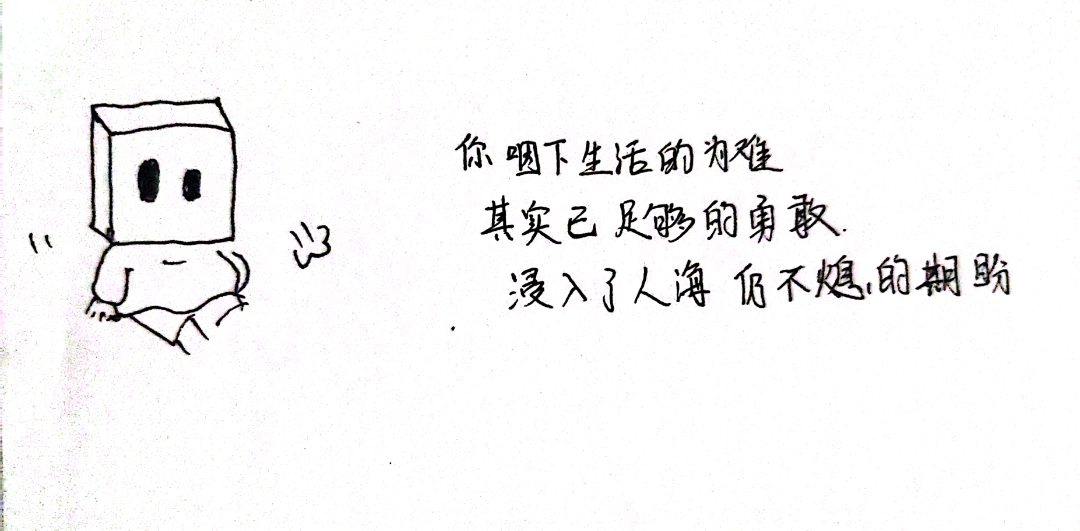 你咽下生活的为难
其实已足够的勇敢.
浸入了人海 仍不熄的期盼